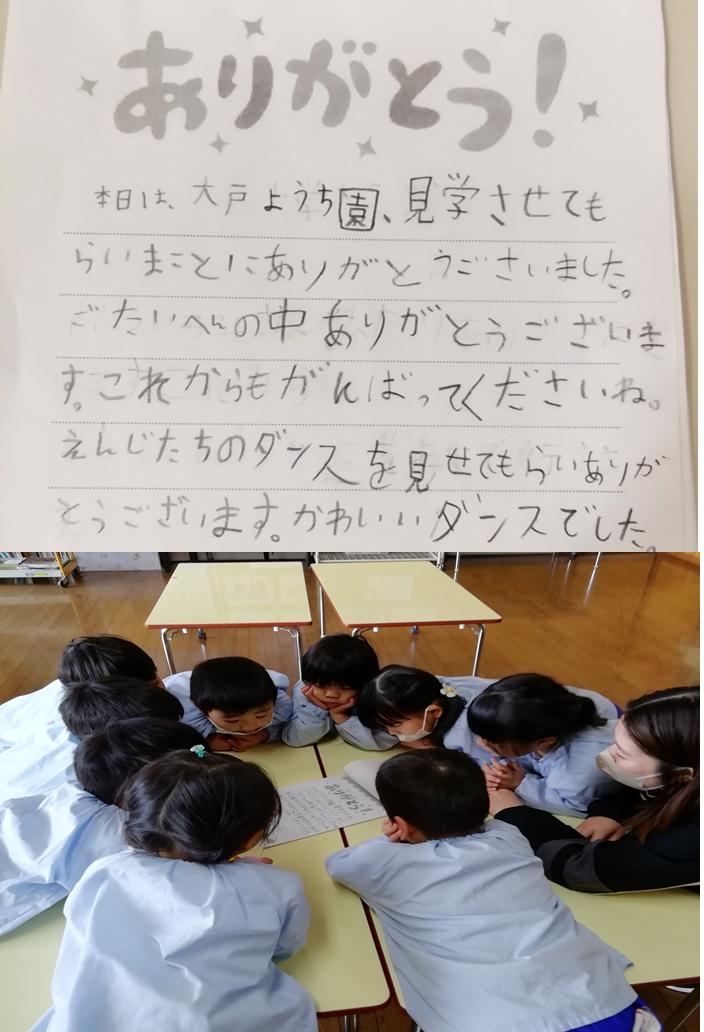 ありがとう!
本日は、大戸ようち園、見学させても
らいまことにありがとうございました。
ごたいへんの中ありがとうございま
す。これからもがんばってくださいね。
えんじたちのダンスを見せてもらいありが
とうございます。かわいいダンスでした。
ありがとう!